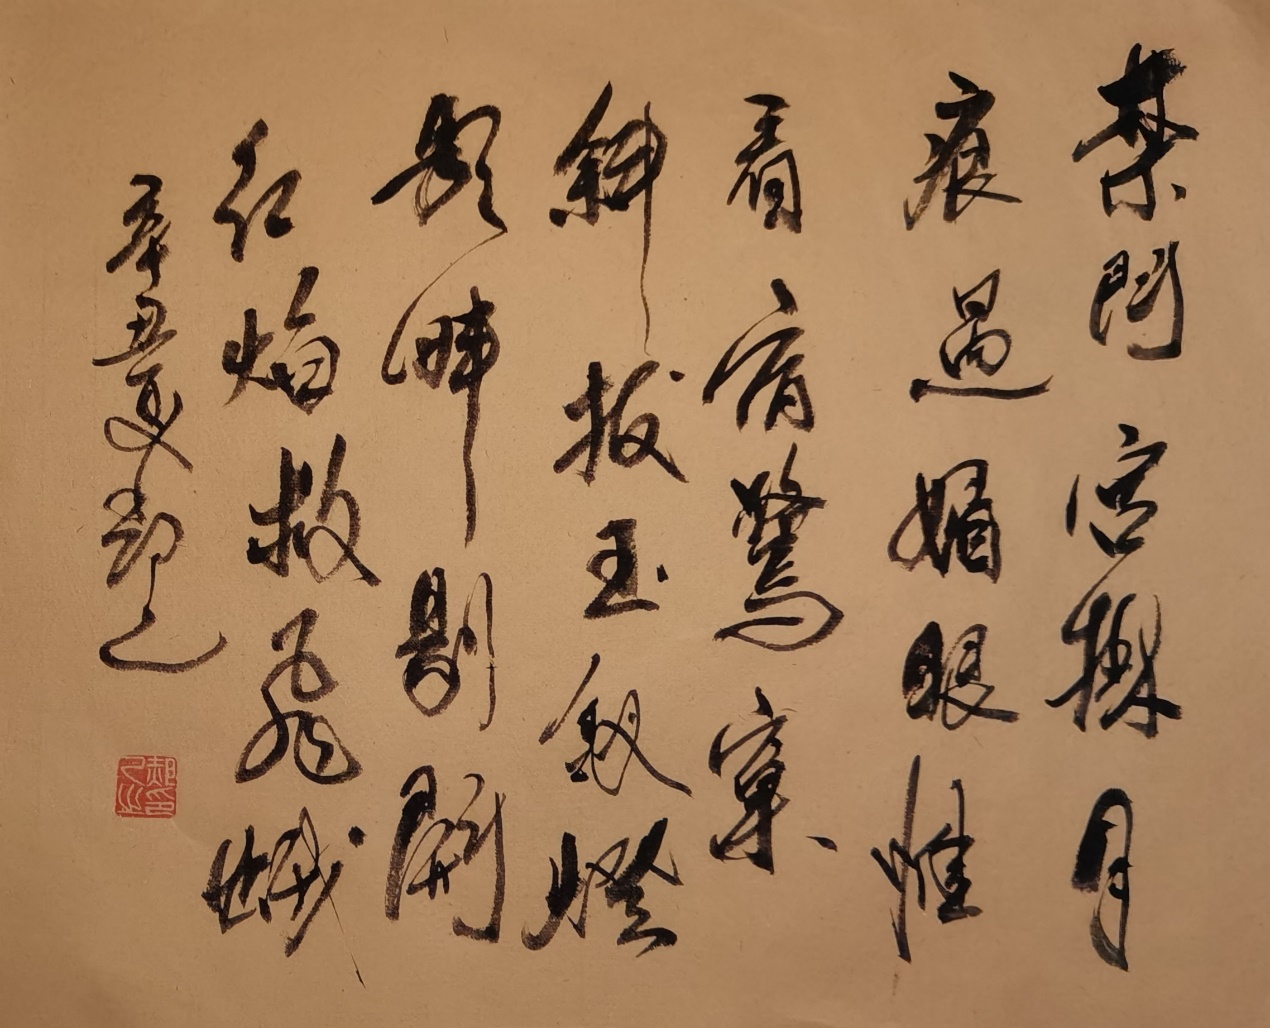 禁門宮樹月
痕過媚眼惟
看宿鷺窠
斜拔玉釵燈
影畔剔開
紅焰救飛蛾
辛丑夏